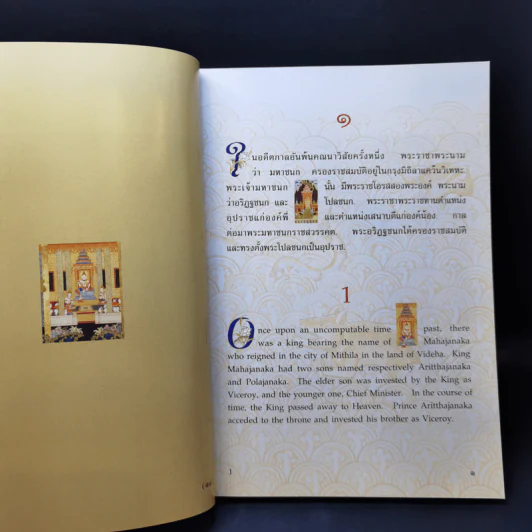 ๑
ในอดีตกาลอันพ้นคณนาวิสัยครั้งหนึ่ง พระราชาพระนาม
ว่า มหาชนก ครองราชสมบัติอยู่ในกรุงมิถิลาแคว้นวิเทหะ
พระเจ้ามหาชนก นั้น มีพระราชโอรสสองพระองค์ พระนาม
ว่าอริฏฐชนก และ โปลชนก. พระราชาพระราชทานตำแหน่ง
อุปราชแก่องค์พี่ และตำแหน่งเสนาบดีแก่องค์น้อง. กาล
ต่อมาพระมหาชนกราชสวรรคต. พระอริฏฐชนกได้ครองราชสมบัติ
และทรงตั้งพระโปลชนกเป็นอุปราช.
1
Once upon an uncomputable time past, there
was a king bearing the name of Mahajanaka
who reigned in the city of Mithila in the land of Videha. King
Mahajanaka had two sons named respectively Aritthajanaka
and Polajanaka. The elder son was invested by the King as
Viceroy, and the younger one, Chief Minister. In the course of
time, the King passed away to Heaven. Prince Aritthajanaka
acceded to the throne and invested his brother as Viceroy.
1